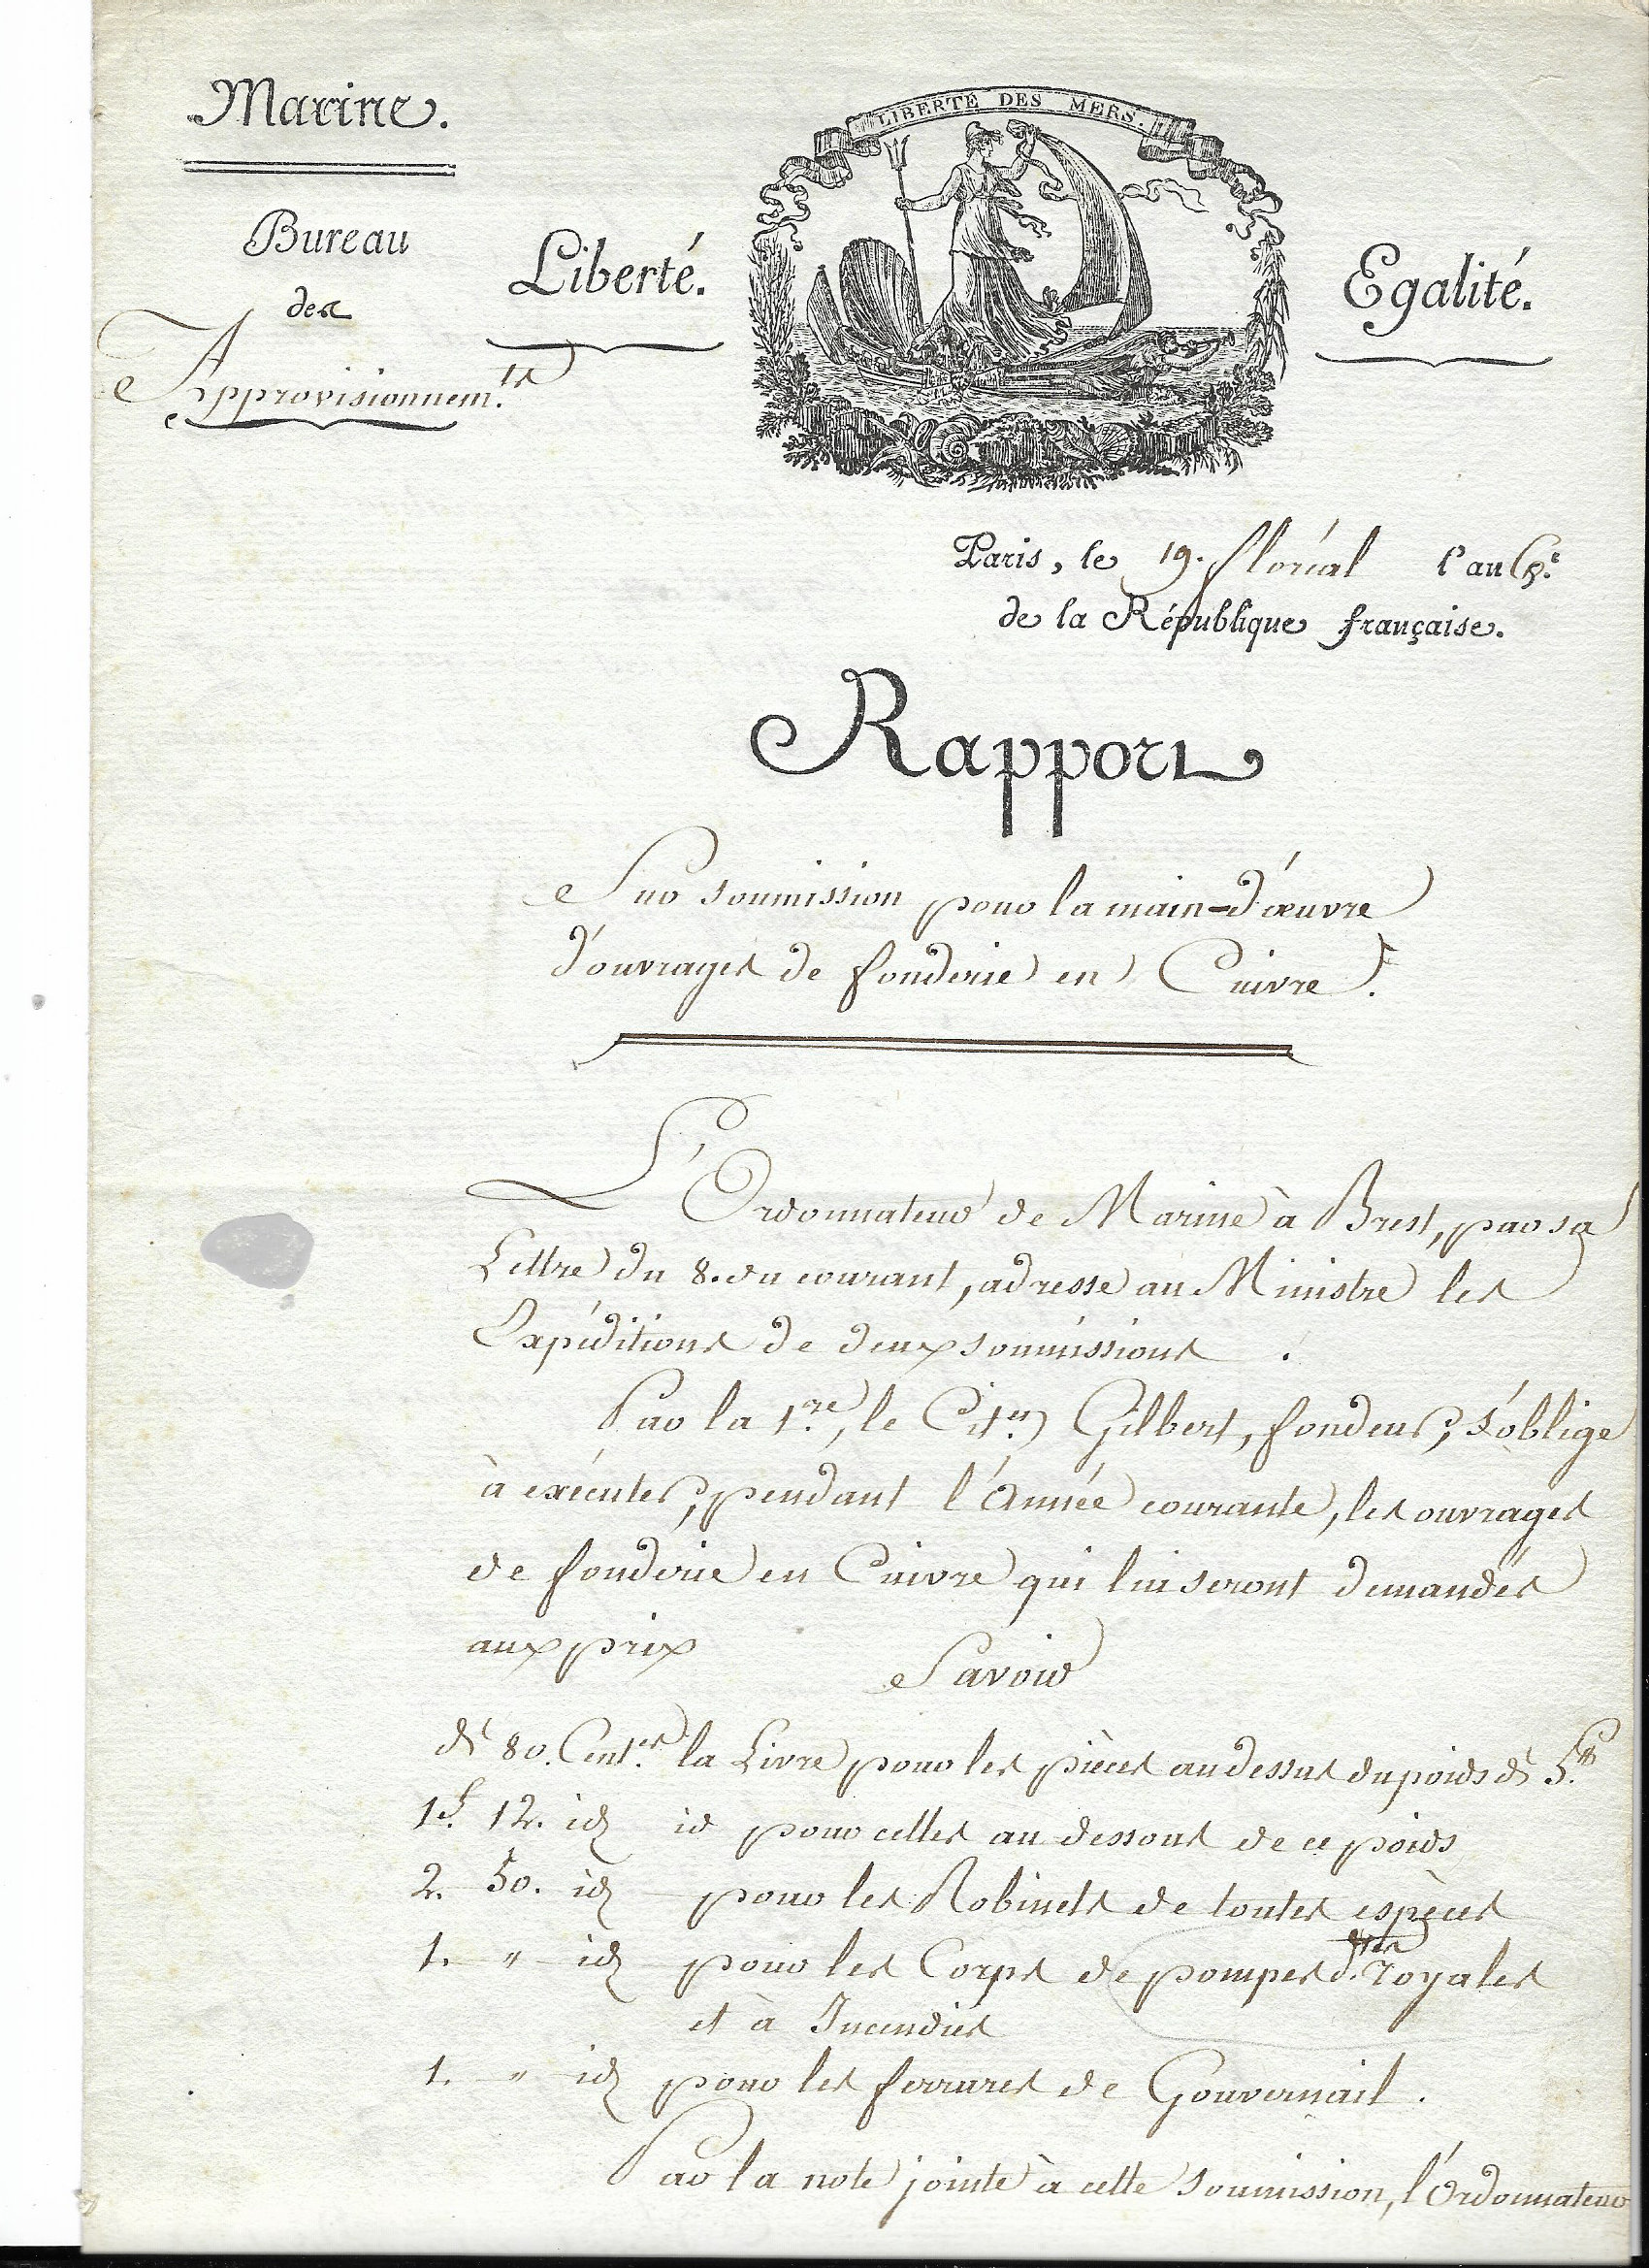 Marine.
Bureau
des
Approvisionnem.ts
LIBERTÉ DES MERS.
Liberté.
Egalité.
Paris, le 19. floréal l'an
de la République française.
Rapport
Sur soumission pour la main-d'œuvre
d'ouvrages de fonderie en Cuivre.
L'Ordonnateur de Marine à Brest, par sa
Lettre du 8. du courant, adresse au Ministre les
Expéditions de deux soumissions.
Par la 1.re, le Cit.en Gilbert, fondeur, s'oblige
à exécuter, pendant l'Année courante, les ouvrages
de fonderie en Cuivre qui lui seront demandés
aux prix
Savoir
de 80. Cent.es la Livre pour les pièces au dessus du poids de 5.lb
1f. 12. id id pour celles au dessous de ce poids
2. 50. id pour les Robinets de toutes espèces
1. " id pour les Corps de pompes d.tes royales
et à Incendies
1. " id pour les ferrures de Gouvernail.
Par la note jointe à cette soumission, l'Ordonnateur